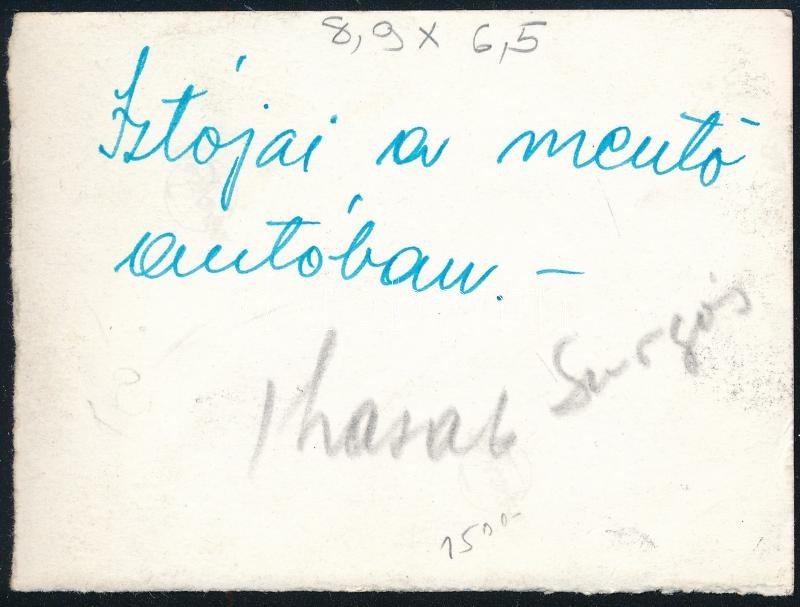 8,9 x 6,5
Sztójai a mentő
autóban. –
1 hasáb Sürgős
1500-